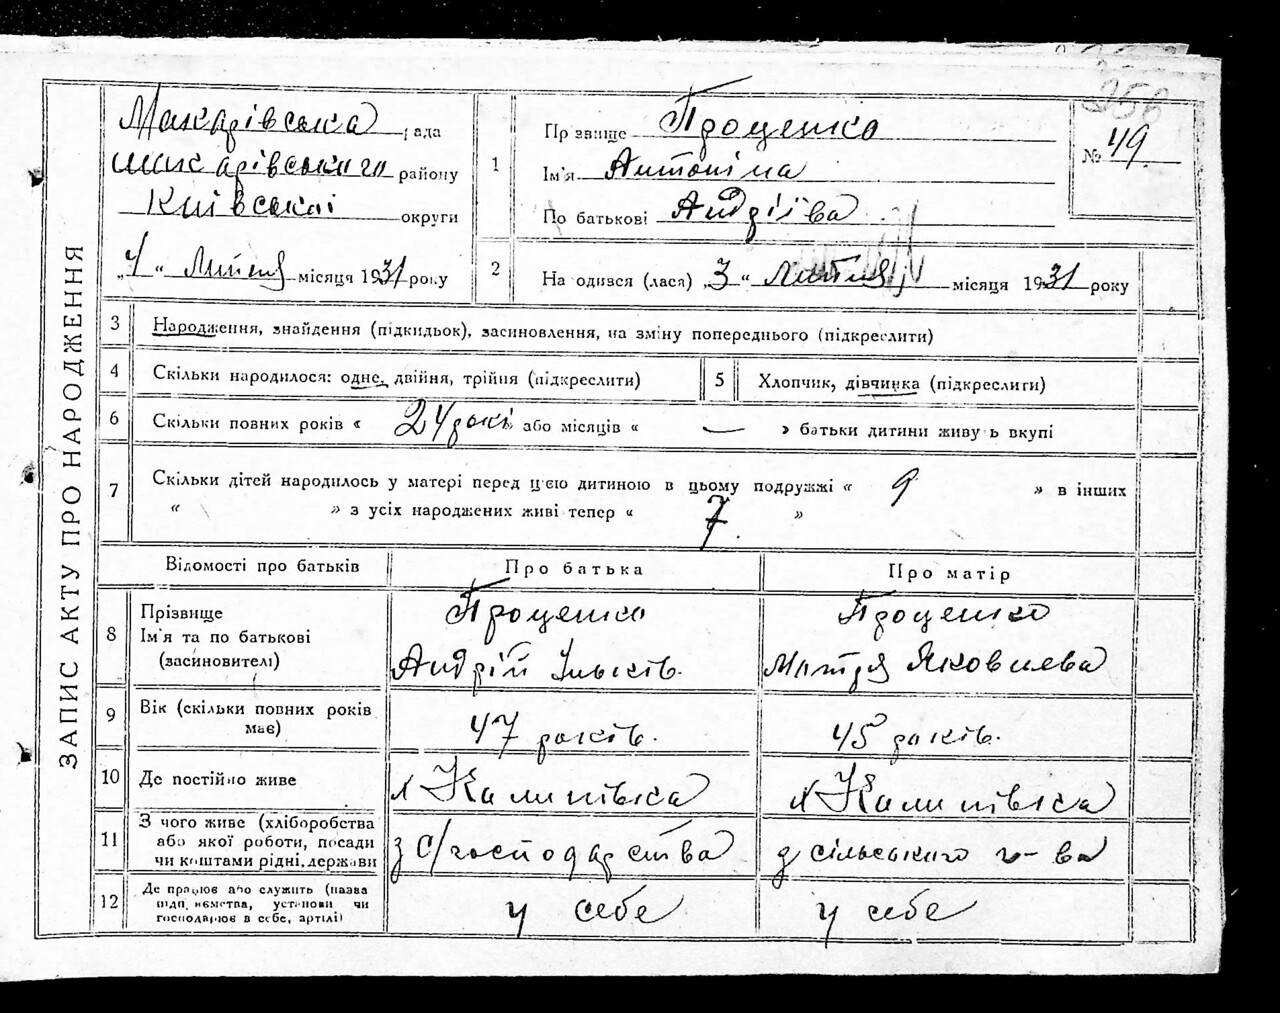 256
Макарівська рада
Макарівського району
Київської округи
„4“ Липня місяця 1931 року
1 Прізвище Проценко
Ім'я Антоніна
По батькові Андріїва
№ 49
2 Народився (лася) „3“ Липня місяця 1931 року
ЗАПИС АКТУ ПРО НАРОДЖЕННЯ
3 Народження, знайдення (підкидьок), засиновлення, на зміну попереднього (підкреслити)
4 Скільки народилося: одне, двійня, трійня (підкреслити)
5 Хлопчик, дівчинка (підкреслити)
6 Скільки повних років « 24 рокі » або місяців « — » батьки дитини живуть вкупі
7 Скільки дітей народилось у матері перед цією дитиною в цьому подружжі « 9 » в інших
« » з усіх народжених живі тепер « 7 »
Відомості про батьків Про батька Про матір
8 Прізвище Проценко Проценко
Ім'я та по батькові
(засиновителі) Андрій Ільків. Мотря Яковлева
9 Вік (скільки повних років
має) 47 років. 45 років.
10 Де постійно живе Калинівка Калинівка
11 З чого живе (хліборобства
або якої роботи, посади
чи коштами рідні, держави з С/господарства з сільського г-ва
12 Де працює або служить (назва
підприємства, установи чи
господарює в себе, артілі) у себе у себе